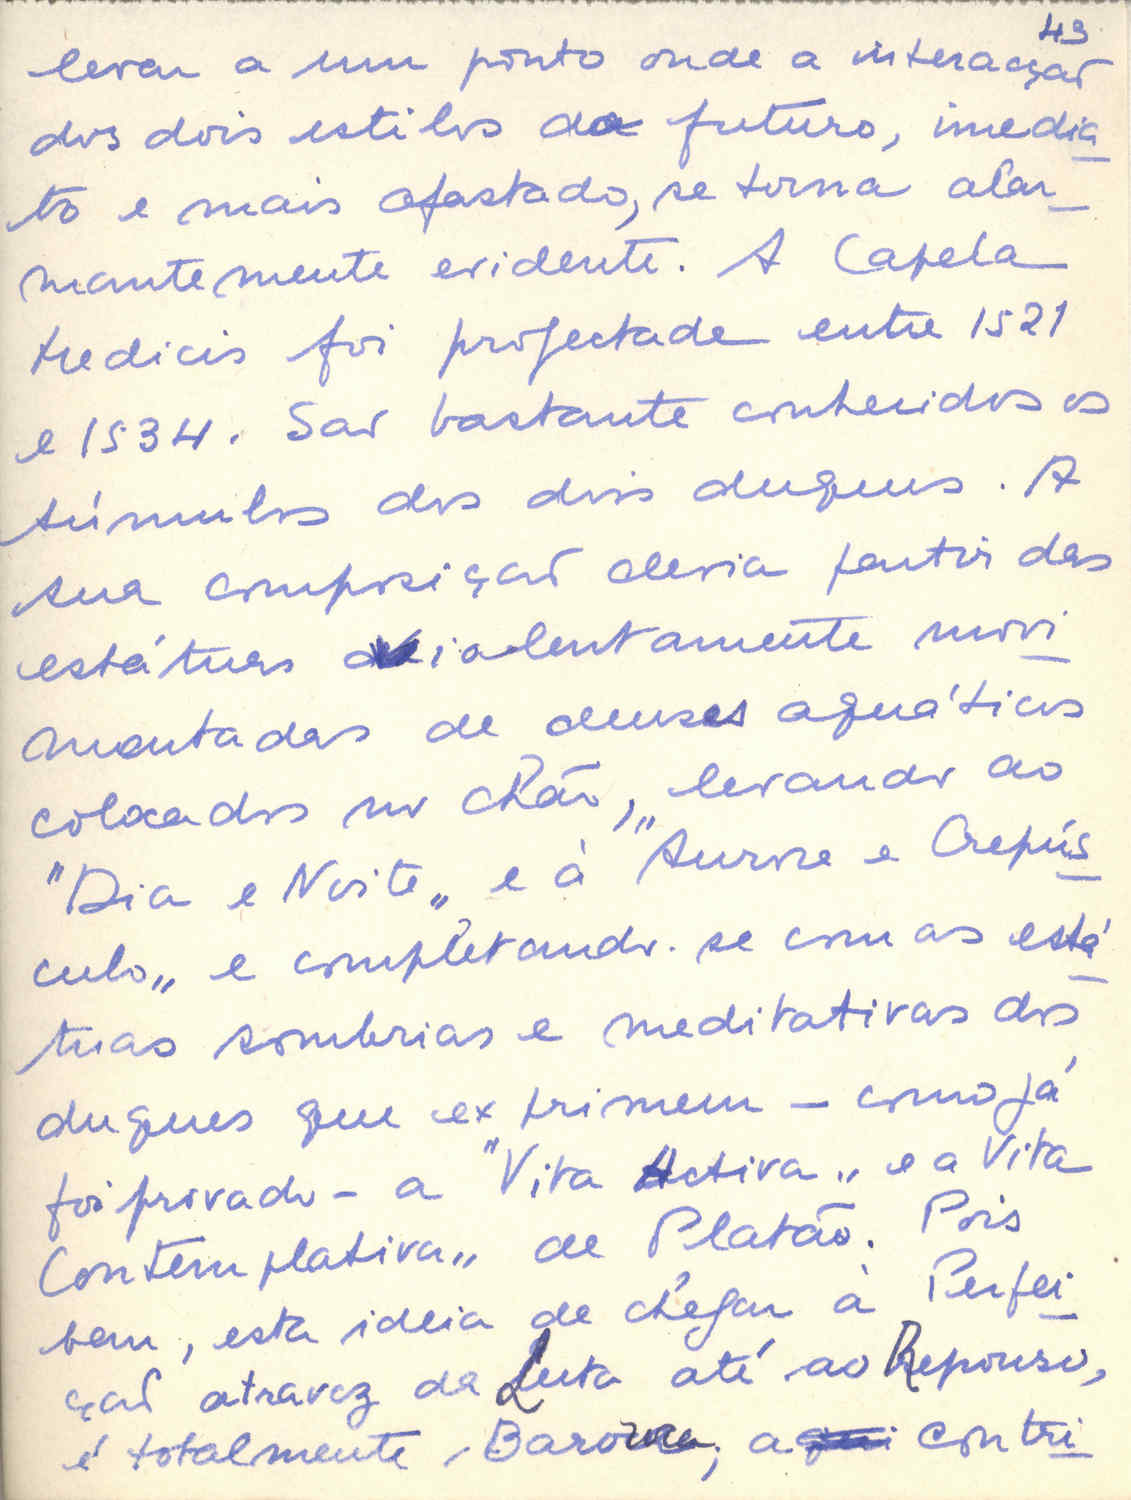 43
levar a um ponto onde a interacção
dos dois estilos do futuro, imedia
to e mais afastado, se torna alar
mantemente evidente. A Capela
Medicis foi projectada entre 1521
e 1534. São bastante conhecidos os
túmulos dos dois duques. A
sua composição devia partir das
estátuas violentamente movi
mentadas de deuses aquáticos
colocados no chão, levando ao
"Dia e Noite„ e à "Aurora e Crepús
culo„ e completando-se com as está
tuas sombrias e meditativas dos
duques que exprimem – como já
foi provado – a "Vita Activa„ e a "Vita
Contemplativa„ de Platão. Pois
bem, esta ideia de chegar à Perfei
ção atravez da Luta até ao Repouso,
é totalmente Barroca, a contri